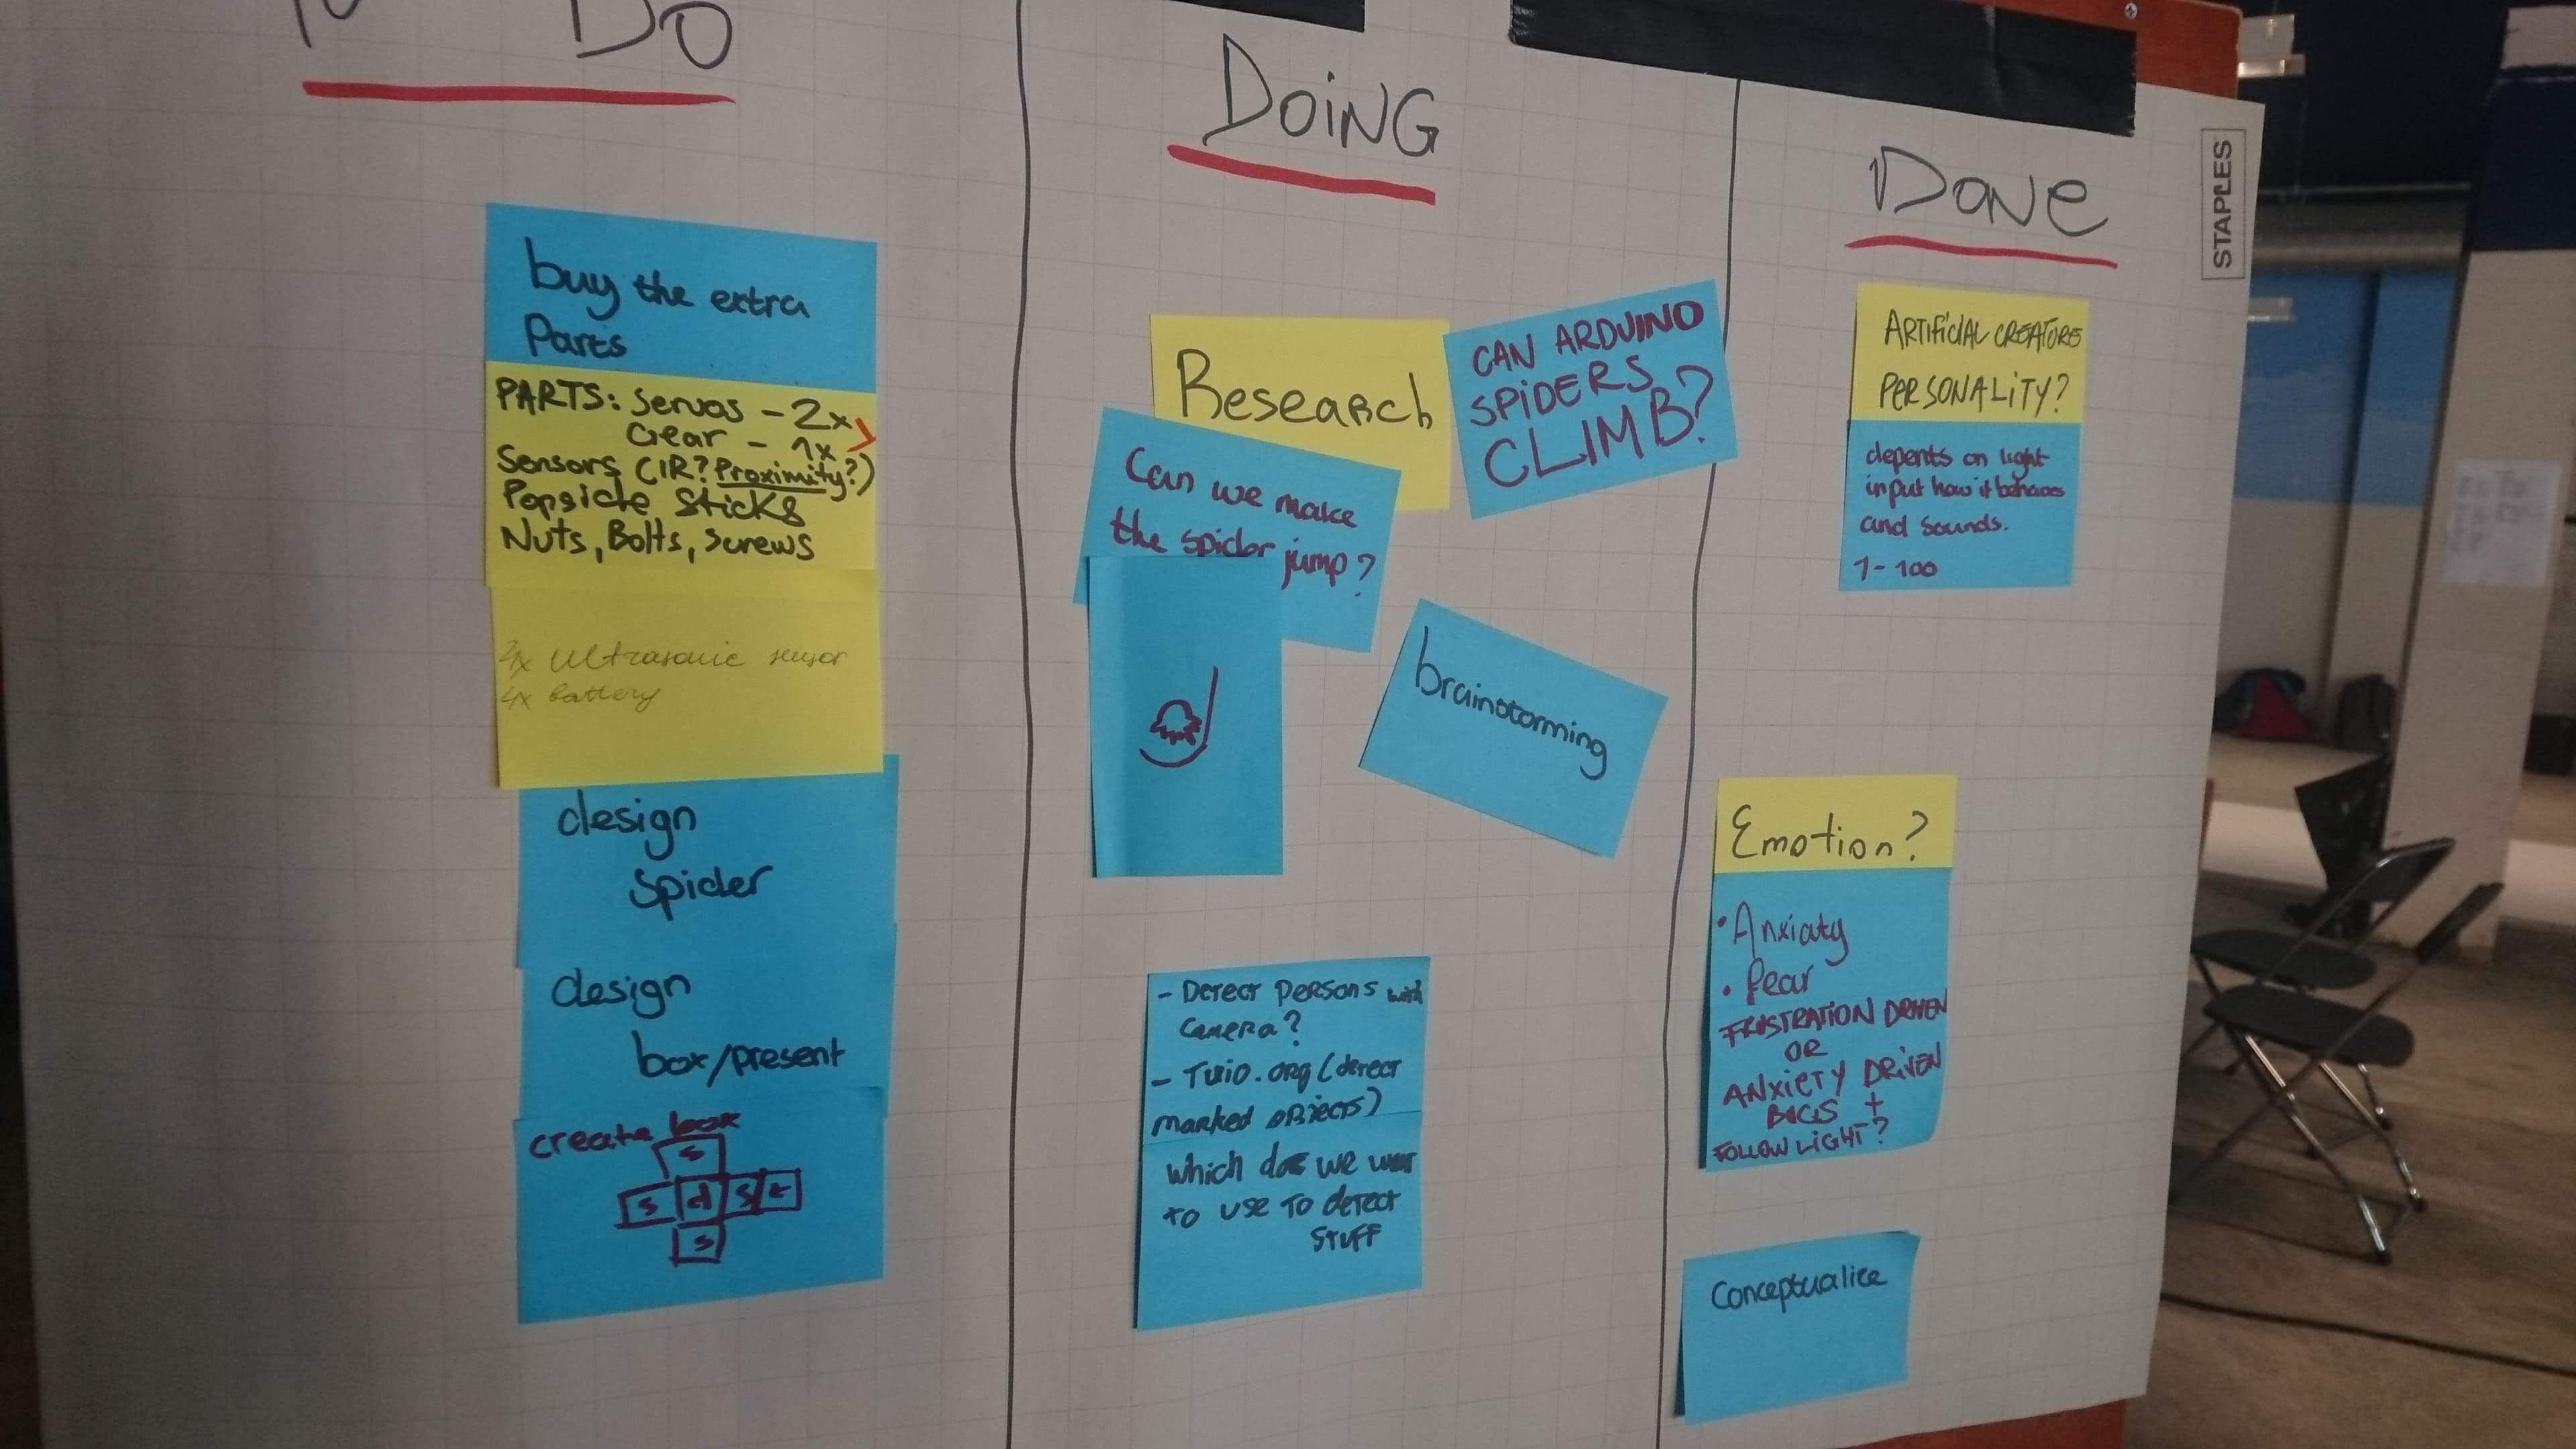 To DO
buy the extra
Parts
PARTS: Servos - 2x
Gear - 1x
Sensors (IR? Proximity?)
Popsicle Sticks
Nuts, Bolts, Screws
Ultrasonic sensor
4x battery
design
spider
design
box/present
create box
s
s d s t
s
DOiNG
Research
CAN ARDUINO
SPiDERS
CLIMB?
Can we make
the spider jump?
brainstorming
- Detect persons with
camera?
- Tuio.org (detect
marked objects)
which do we want
to use to detect
stuff
DoNe
ARTificiAL CREATURE
PERSONALITY?
depents on light
input how it behaves
and sounds.
1-100
Emotion?
• Anxiaty
• fear
FRUSTRATION DRIVEN
OR
ANXIETY DRIVEN
BUGS +
FOLLOW LIGHT?
Conceptualice
STAPLES